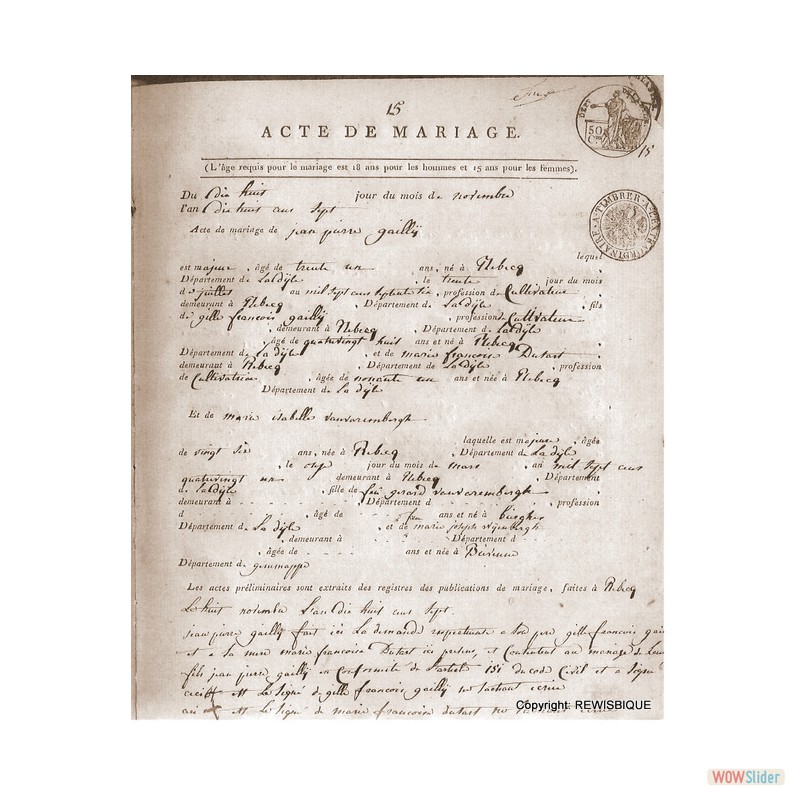 15
ACTE DE MARIAGE.
50
C.
15
(L'âge requis pour le mariage est 18 ans pour les hommes et 15 ans pour les femmes).
Du dix huit jour du mois de novembre
l'an dix huit cens sept
Acte de mariage de jean pierre gailly
lequel
est majeur, âgé de trente un ans, né à Rebecq
Département de La dyle, le trente jour du mois
de juillet au mil sept cens septante six, profession de Cultivateur
demeurant à Rebecq, Département de La dyle, fils
de gille francois gailly, profession de Cultivateur
, demeurant à Rebecq, Département de La dyle
, âgé de quatrevingt huit ans, né à Rebecq
Département de La dyle, et de marie francoise Dutart
demeurant à Rebecq, Département de La dyle, profession
de Cultivatrice, âgée de nonante un ans et née à Rebecq
Département de La dyle
Et de marie isabelle vanvarembergh
laquelle est majeure, âgée
de vingt six ans, née à Rebecq, Département de La dyle
, le onze jour du mois de mars, an mil sept cens
quatrevingt un demeurant à Rebecq, Département
de La dyle, fille de feu gerard vanvarembergh
demeurant à, Département d, profession
d, âgé de ans et né à
Département de La dyle, et de marie joseph
, demeurant à Département d
, âgée de ans et née à
Département de gemmappe
Les actes préliminaires sont extraits des registres des publications de mariage, faites à Rebecq
Le huit novembre L'an dix huit cens sept.
jean pierre gailly fait ici La demande respectueuse a son pere gille francois
et a sa mere marie francoise Dutart ici presens, et Consentent au mariage de Leur
fils jean pierre gailly en Conformité de L'article 151 du code Civil et a signé
ceci Le signé de gille francois gailly ne sachant ecrire
Le signé de marie francoise dutart ne sachant
Copyright: REWISBIQUE
WOWSlider